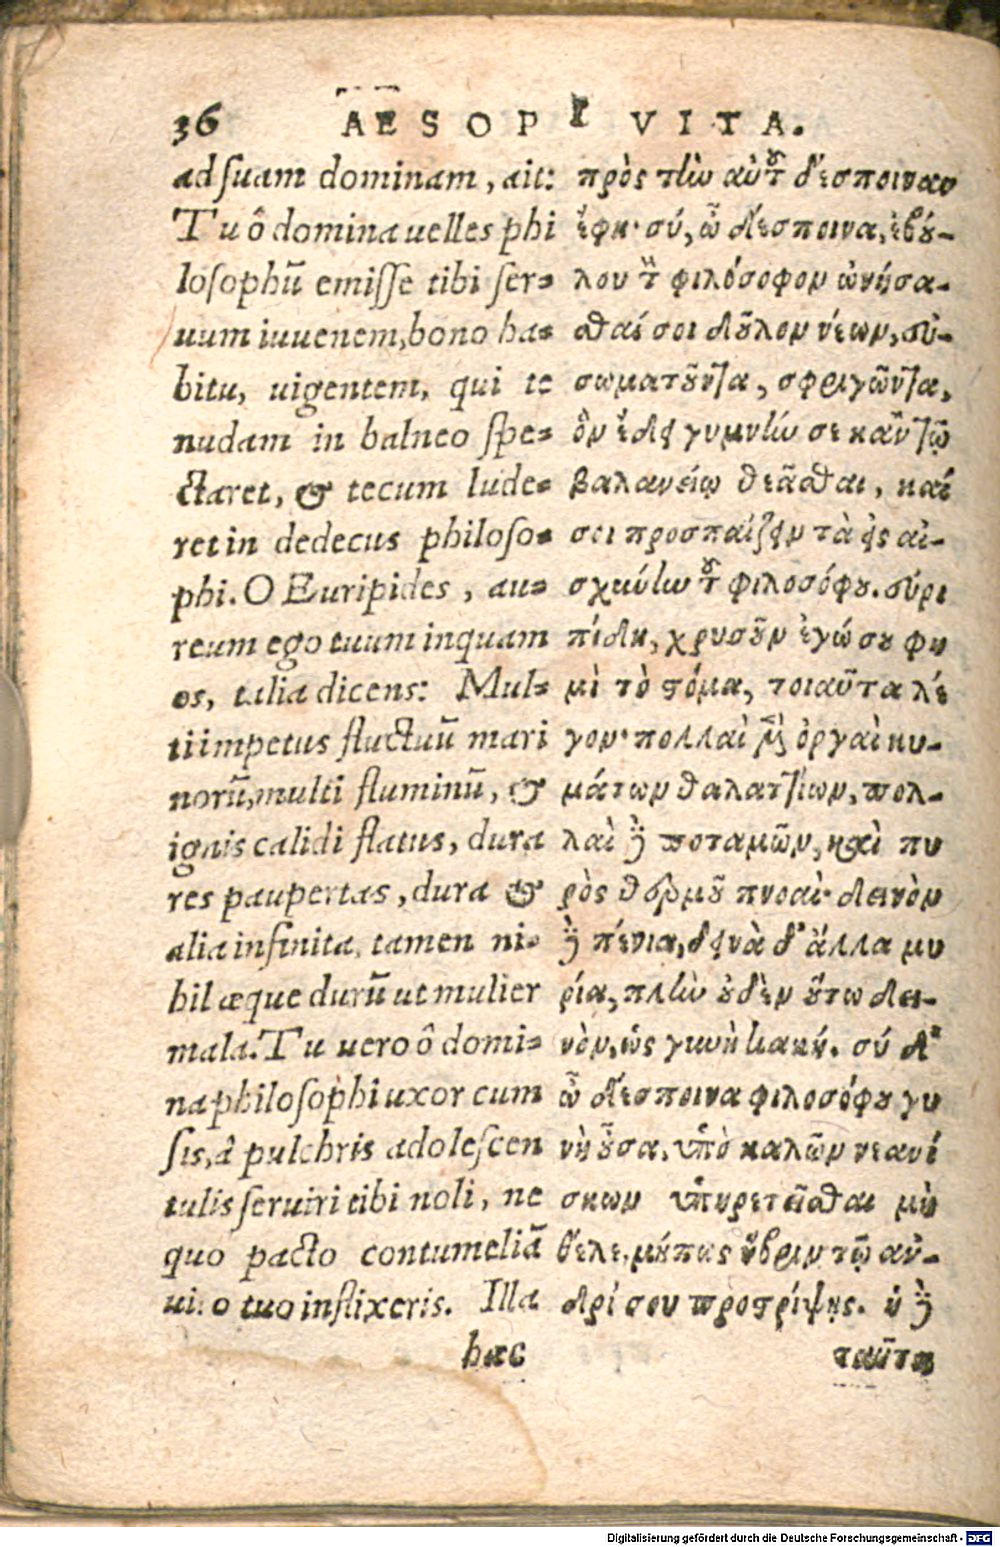 36 AESOPI VITA.
ad suam dominam, ait:
Tu ô domina uelles phi
losophũ emisse tibi ser-
uum iuuenem, bono ha-
bitu, uigentem, qui te
nudam in balneo spe-
ctaret, & tecum lude-
ret in dedecus philoso-
phi. O Euripides, au-
reum ego tuum inquam
os, talia dicens: Mul-
ti impetus fluctuũ mari
norũ, multi fluminũ, &
ignis calidi flatus, dura
res paupertas, dura &
alia infinita, tamen ni-
hil æque durũ ut mulier
mala. Tu uero ô domi-
na philosophi uxor cum
sis, à pulchris adolescen
tulis seruiri tibi noli, ne
quo pacto contumeliã
uiro tuo inflixeris. Illa
hæc
πρὸς τὴν αὐτοῦ δέσποιναν
ἔφη· σύ, ὦ δέσποινα, ἐβού-
λου τὸν φιλόσοφον ὠνήσα-
σθαί σοι δοῦλον νέων, εὐ-
σωματοῦντα, σφριγῶντα,
ὃν ἔδει γυμνήν σε κἀν τῷ
βαλανείῳ θεᾶσθαι, καί
σοι προσπαίζειν τὰ εἰς αἰ-
σχύνην τοῦ φιλοσόφου. εὐρι
πίδη, χρυσοῦν ἐγώ σου φη
μὶ τὸ στόμα, τοιαῦτα λέ
γον· πολλαὶ μὲν ὀργαὶ κυ-
μάτων θαλαττίων, πολ-
λαὶ δὲ ποταμῶν, καὶ πυ
ρὸς θερμοῦ πνοαί· δεινὸν
δὲ πενία, δεινὰ δ' ἄλλα μυ
ρία, πλὴν οὐδὲν οὕτω δει-
νὸν, ὡς γυνὴ κακή. σύ δ'
ὦ δέσποινα φιλοσόφου γυ
νὴ οὖσα, ὑπὸ καλῶν νεανί
σκων ὑπηρετεῖσθαι μὴ
θέλε, μήπως ὕβριν τῷ ἀν-
δρί σου προστρίψῃς. ἡ δὲ
ταῦτα
Digitalisierung gefördert durch die Deutsche Forschungsgemeinschaft - DFG